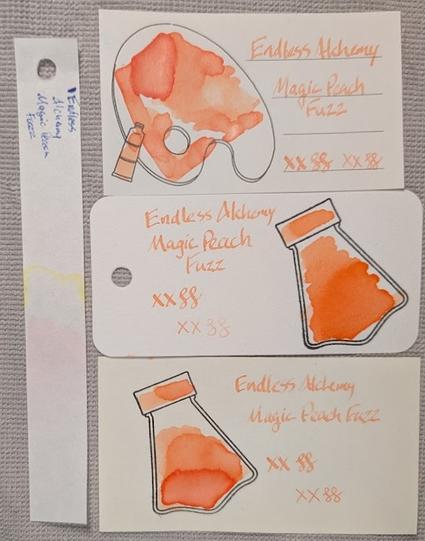 Endless
Alchemy
Magic Peach
Fuzz
Endless Alchemy
Magic Peach
Fuzz
XX 88 XX 88
Endless Alchemy
Magic Peach
Fuzz
XX 88
XX 88
Endless Alchemy
Magic Peach Fuzz
XX 88
XX 88